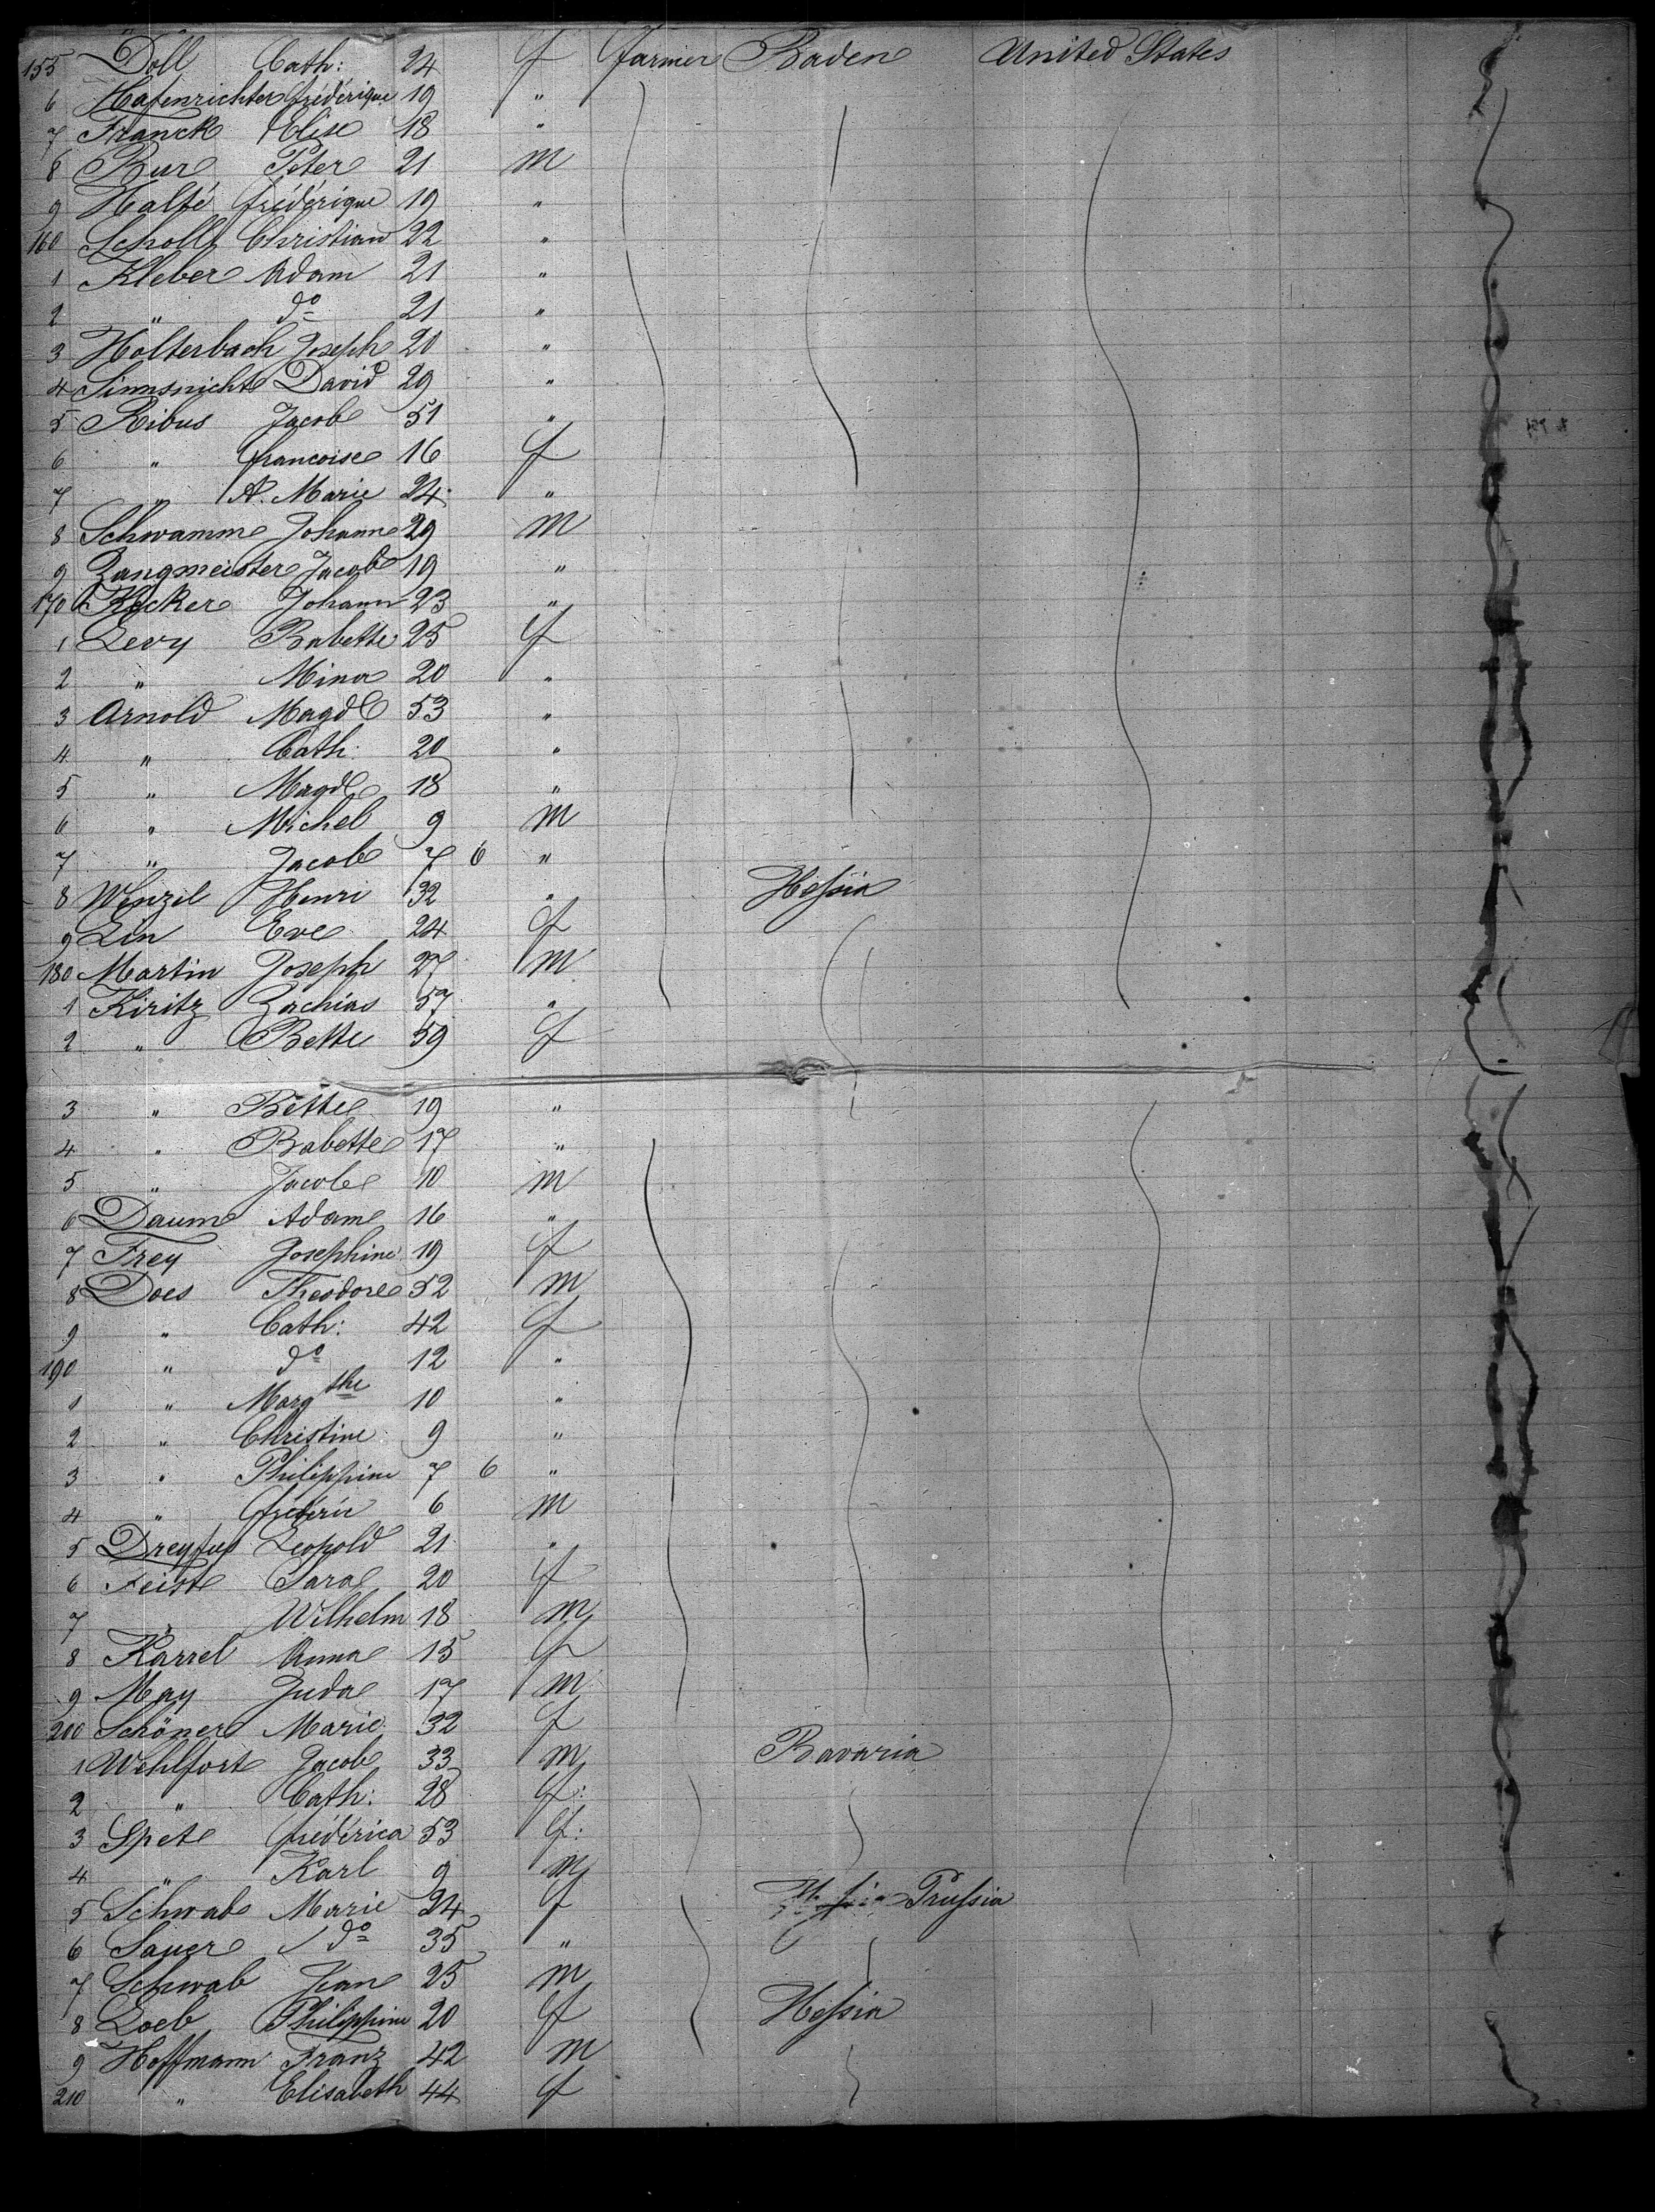 155 Döll Cath: 24 f farmer Baden United States
6 Hafenrichter frédérique 19 "
7 Franck Elise 18 "
8 Bur Peter 21 m
9 Halfé frédérique 19 "
160 Scholl Christian 22 "
1 Kleber Adam 21 "
2 " do 21 "
3 Holterbach Joseph 20 "
4 David 29 "
5 Ribus Jacob 51 "
6 " francoise 16 f
7 " A. Marie 24 "
8 Schwamm Johann 29 m
9 Zangmeister Jacob 19 "
170 Kecker Johann 23 "
1 Levy Babette 25 f
2 " Mina 20 "
3 Arnold Magd 53 "
4 " Cath: 20 "
5 " Magd 18 "
6 " Michel 9 m
7 " Jacob 7 6 "
8 Wenzel Henri 32 " Hessia
9 Lin Eve 24 f
180 Martin Joseph 27 m
1 Kiritz Zachias 57 "
2 " Bette 59 f
3 " Bette 19 "
4 " Babette 17 "
5 " Jacob 10 m
6 Daum Adam 16 "
7 Frey Josephine 19 f
8 Does Theodore 52 m
9 " Cath: 42 f
190 " do 12 "
1 " Margthe 10 "
2 " Christine 9 "
3 " Philippine 7 6 "
4 " frederic 6 m
5 Dreyfus Leopold 21 "
6 Feist Sara 20 f
7 " Wilhelm 18 m
8 Karrel Anna 15 f
9 May Juda 17 m
200 Schöner Marie 32 f
1 Wohlfort Jacob 33 m Bavaria
2 " Cath: 28 f:
3 Spet frédérica 53 f:
4 " Karl 9 m
5 Schwab Marie 24 f Prussia
6 Sauer do 35 "
7 Schwab Jean 25 m
8 Loeb Philippine 20 f Hessia
9 Hoffmann Franz 42 m
210 " Elisabeth 44 f